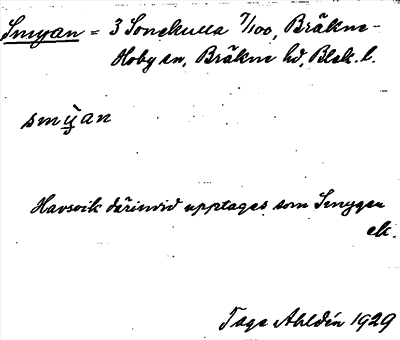 Smyan = 3 Sonekulla 7/100, Bräkne-
Hoby sn, Bräkne hd, Blek. l.
smỳan
Havsvik därinvid upptages som Smygen
ek.
Tage Ahldén 1929